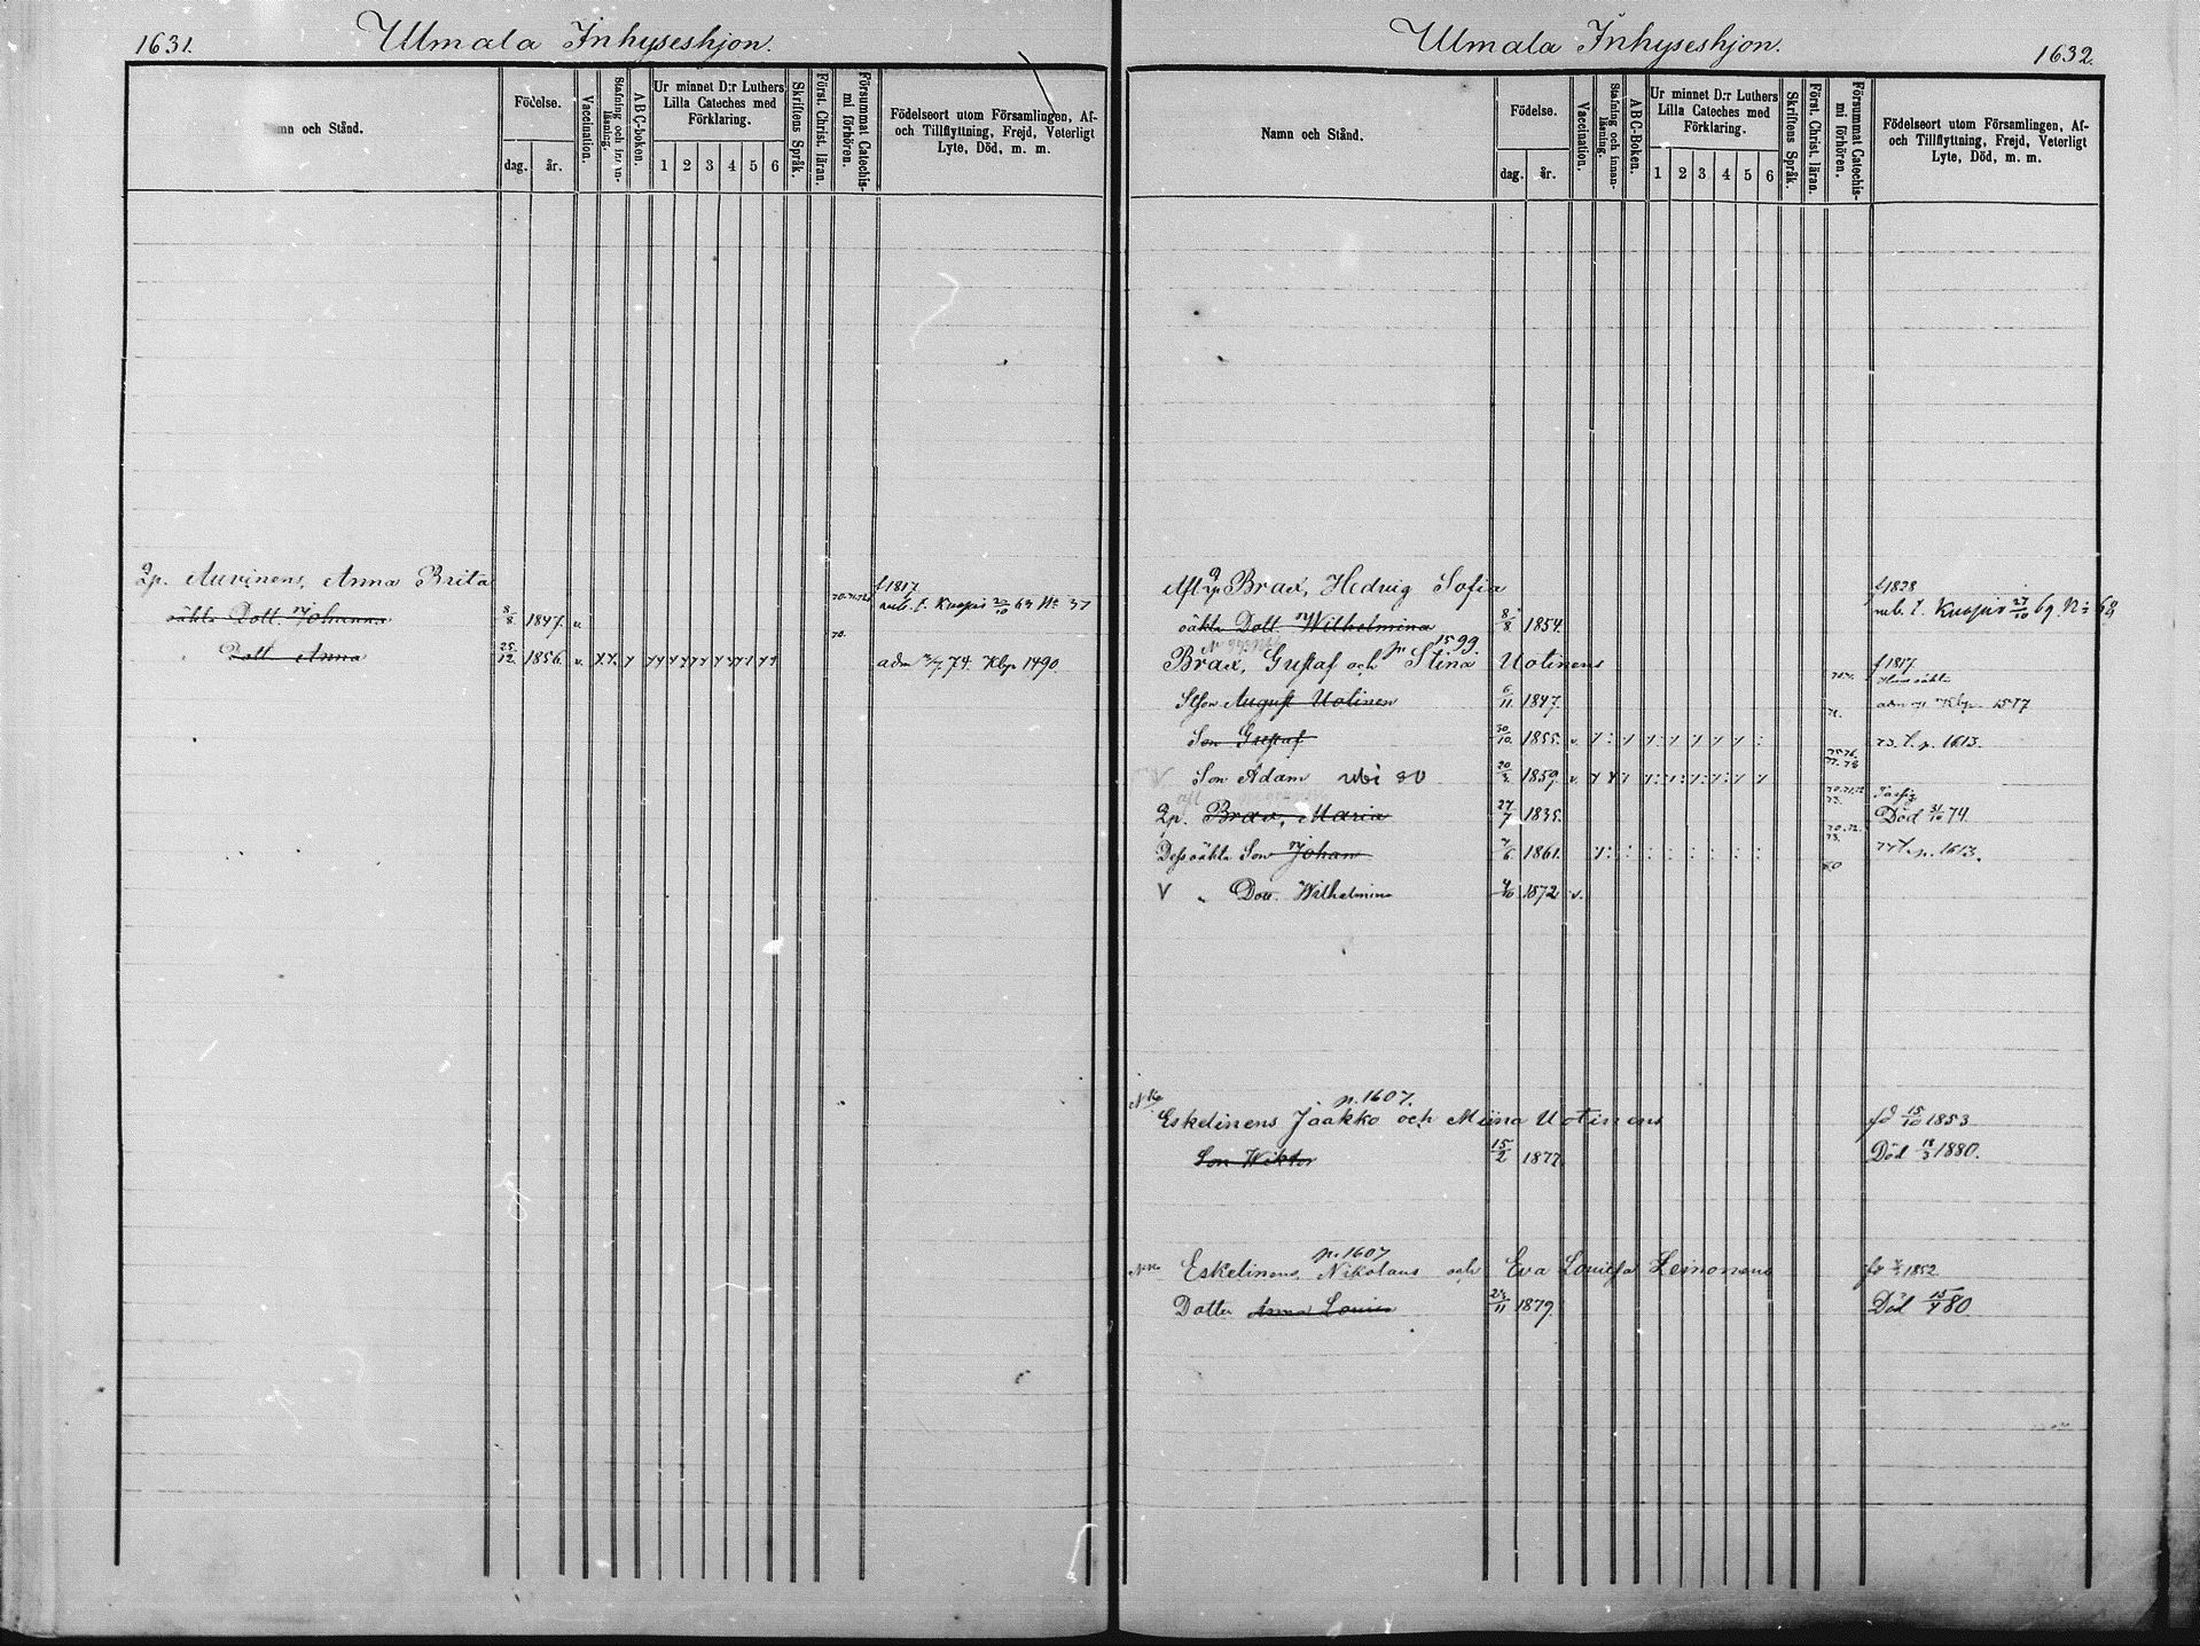 1631. Ulmala Inhyseshjon.
Namn och Stånd.
Födelse.
dag. år.
Vaccination.
Stafning och innan-
läsning.
ABC-boken.
Ur minnet D:r Luthers
Lilla Cateches med
Förklaring.
1 2 3 4 5 6
Skriftens Språk.
Först. Christ. läran.
Försummat Catechis-
mi förhören.
Födelseort utom Församlingen, Af-
och Tillflyttning, Frejd, Veterligt
Lyte, Död, m. m.
Qp. Auvinens, Anna Brita f 1817
oäkta Dott. Johanna 8/8 1847. v. 70.71.72 mb. t. Kuopio 20/10 63 No 37
Dott Anna 25/12. 1856. v. 70. adm 74. Kbp 1490.
Ulmala Inhyseshjon. 1632.
Namn och Stånd.
Födelse.
dag. år.
Vaccination.
Stafning och innan-
läsning.
ABC-Boken.
Ur minnet D:r Luthers
Lilla Cateches med
Förklaring.
1 2 3 4 5 6
Skriftens Språk.
Först. Christ. läran.
Försummat Catechis-
mi förhören.
Födelseort utom Församlingen, Af-
och Tillflyttning, Frejd, Veterligt
Lyte, Död, m. m.
Brax, Hedvig Sofia f 1828
oäkta Dott. Wilhelmina 8/8 1854. mb. t. Kuopio 27/10 69. No 68
1599.
Brax, Gustaf och Stina Uotinens f 1817.
August Uotinen 6/11 1847. Kbp 1577
Son Gustaf 30/10. 1855. v. 71. 73. t. p. 1613.
Son Adam ubi 80 20/3. 1859. v. 75.76. 77.78
Qp. Brax, Maria 27/7 1835. 70.71.72 73. Död 31/10 74.
Dess oäkta Son Johan 7/6. 1861. 70.72. 73. 77 t. p. 1613.
V " Dott. Wilhelmina 1872 v. 80
p. 1607.
Eskelinens Jaakko och Miina Uotinens fd 15/10 1853
Son Wiktor 15/2 1877 Död 18/3 1880.
p. 1607
Eskelinens, Nikolaus och Eva Lovisa Leinonens 1852
Dotter Anna Lovisa 24/11 1879. Död 15/4 80